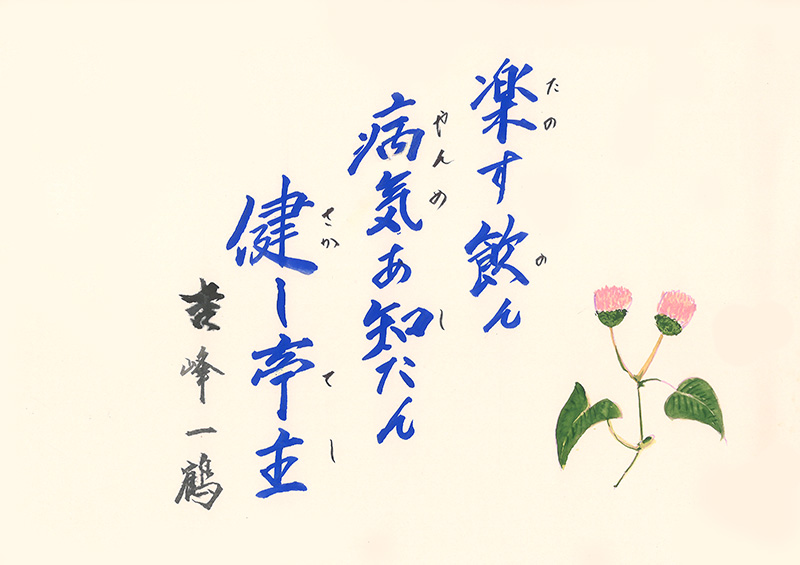 楽す飲ん
たの の
病気あ知たん
やんめ し
健し亭主
さか てし
吉峰一鶴